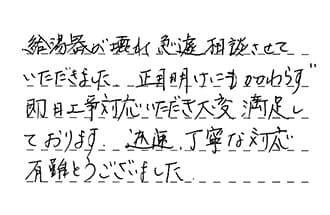 給湯器が壊れ急遽相談させて
いただきました。正月明けにもかかわらず
即日工事対応いただき大変満足し
ております。迅速、丁寧な対応
有難とうございました。